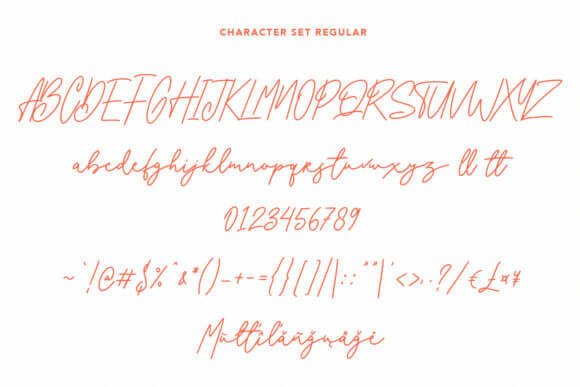 CHARACTER SET REGULAR
ABCDEFGHIJKLMNOPQRSTUVWXYZ
abcdefghijklmnopqrstuvwxyz ll tt
0123456789
~`!@#$%^&*()_+-={}[]/|\::""|'<>,.?/€£¤¥
Mültïlåñğuåğė